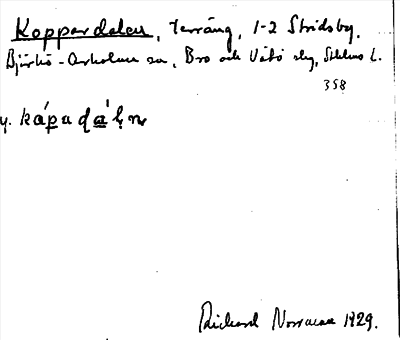 Koppardalen, terräng, 1-2 Stridsby,
Björkö-Arholma sn, Bro och Vätö skg, Sthlms l.
358
y. kápadàl̥n
Rickard Norrman 1929.